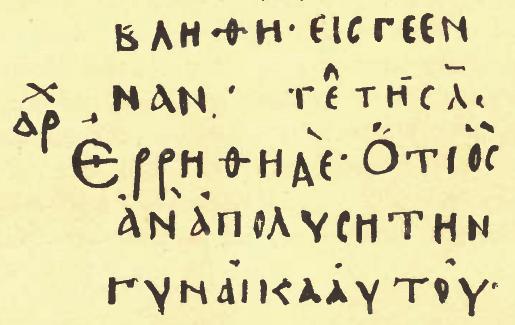 ΒΛΗΘΗ· ΕΙϹ ΓΕΕΝ
ΝΑΝ· ΤΕ̂ ΤΗ̄Ϲ Λ̄·
ΑΡΧ
ἘΡΡΗΘΗ ΔῈ· ὍΤΙ ὋϹ
ἈΝ ἈΠΟΛΥϹΗ ΤΗΝ
ΓΥΝΑΙΚΑ ΑΥΤΟΥ·